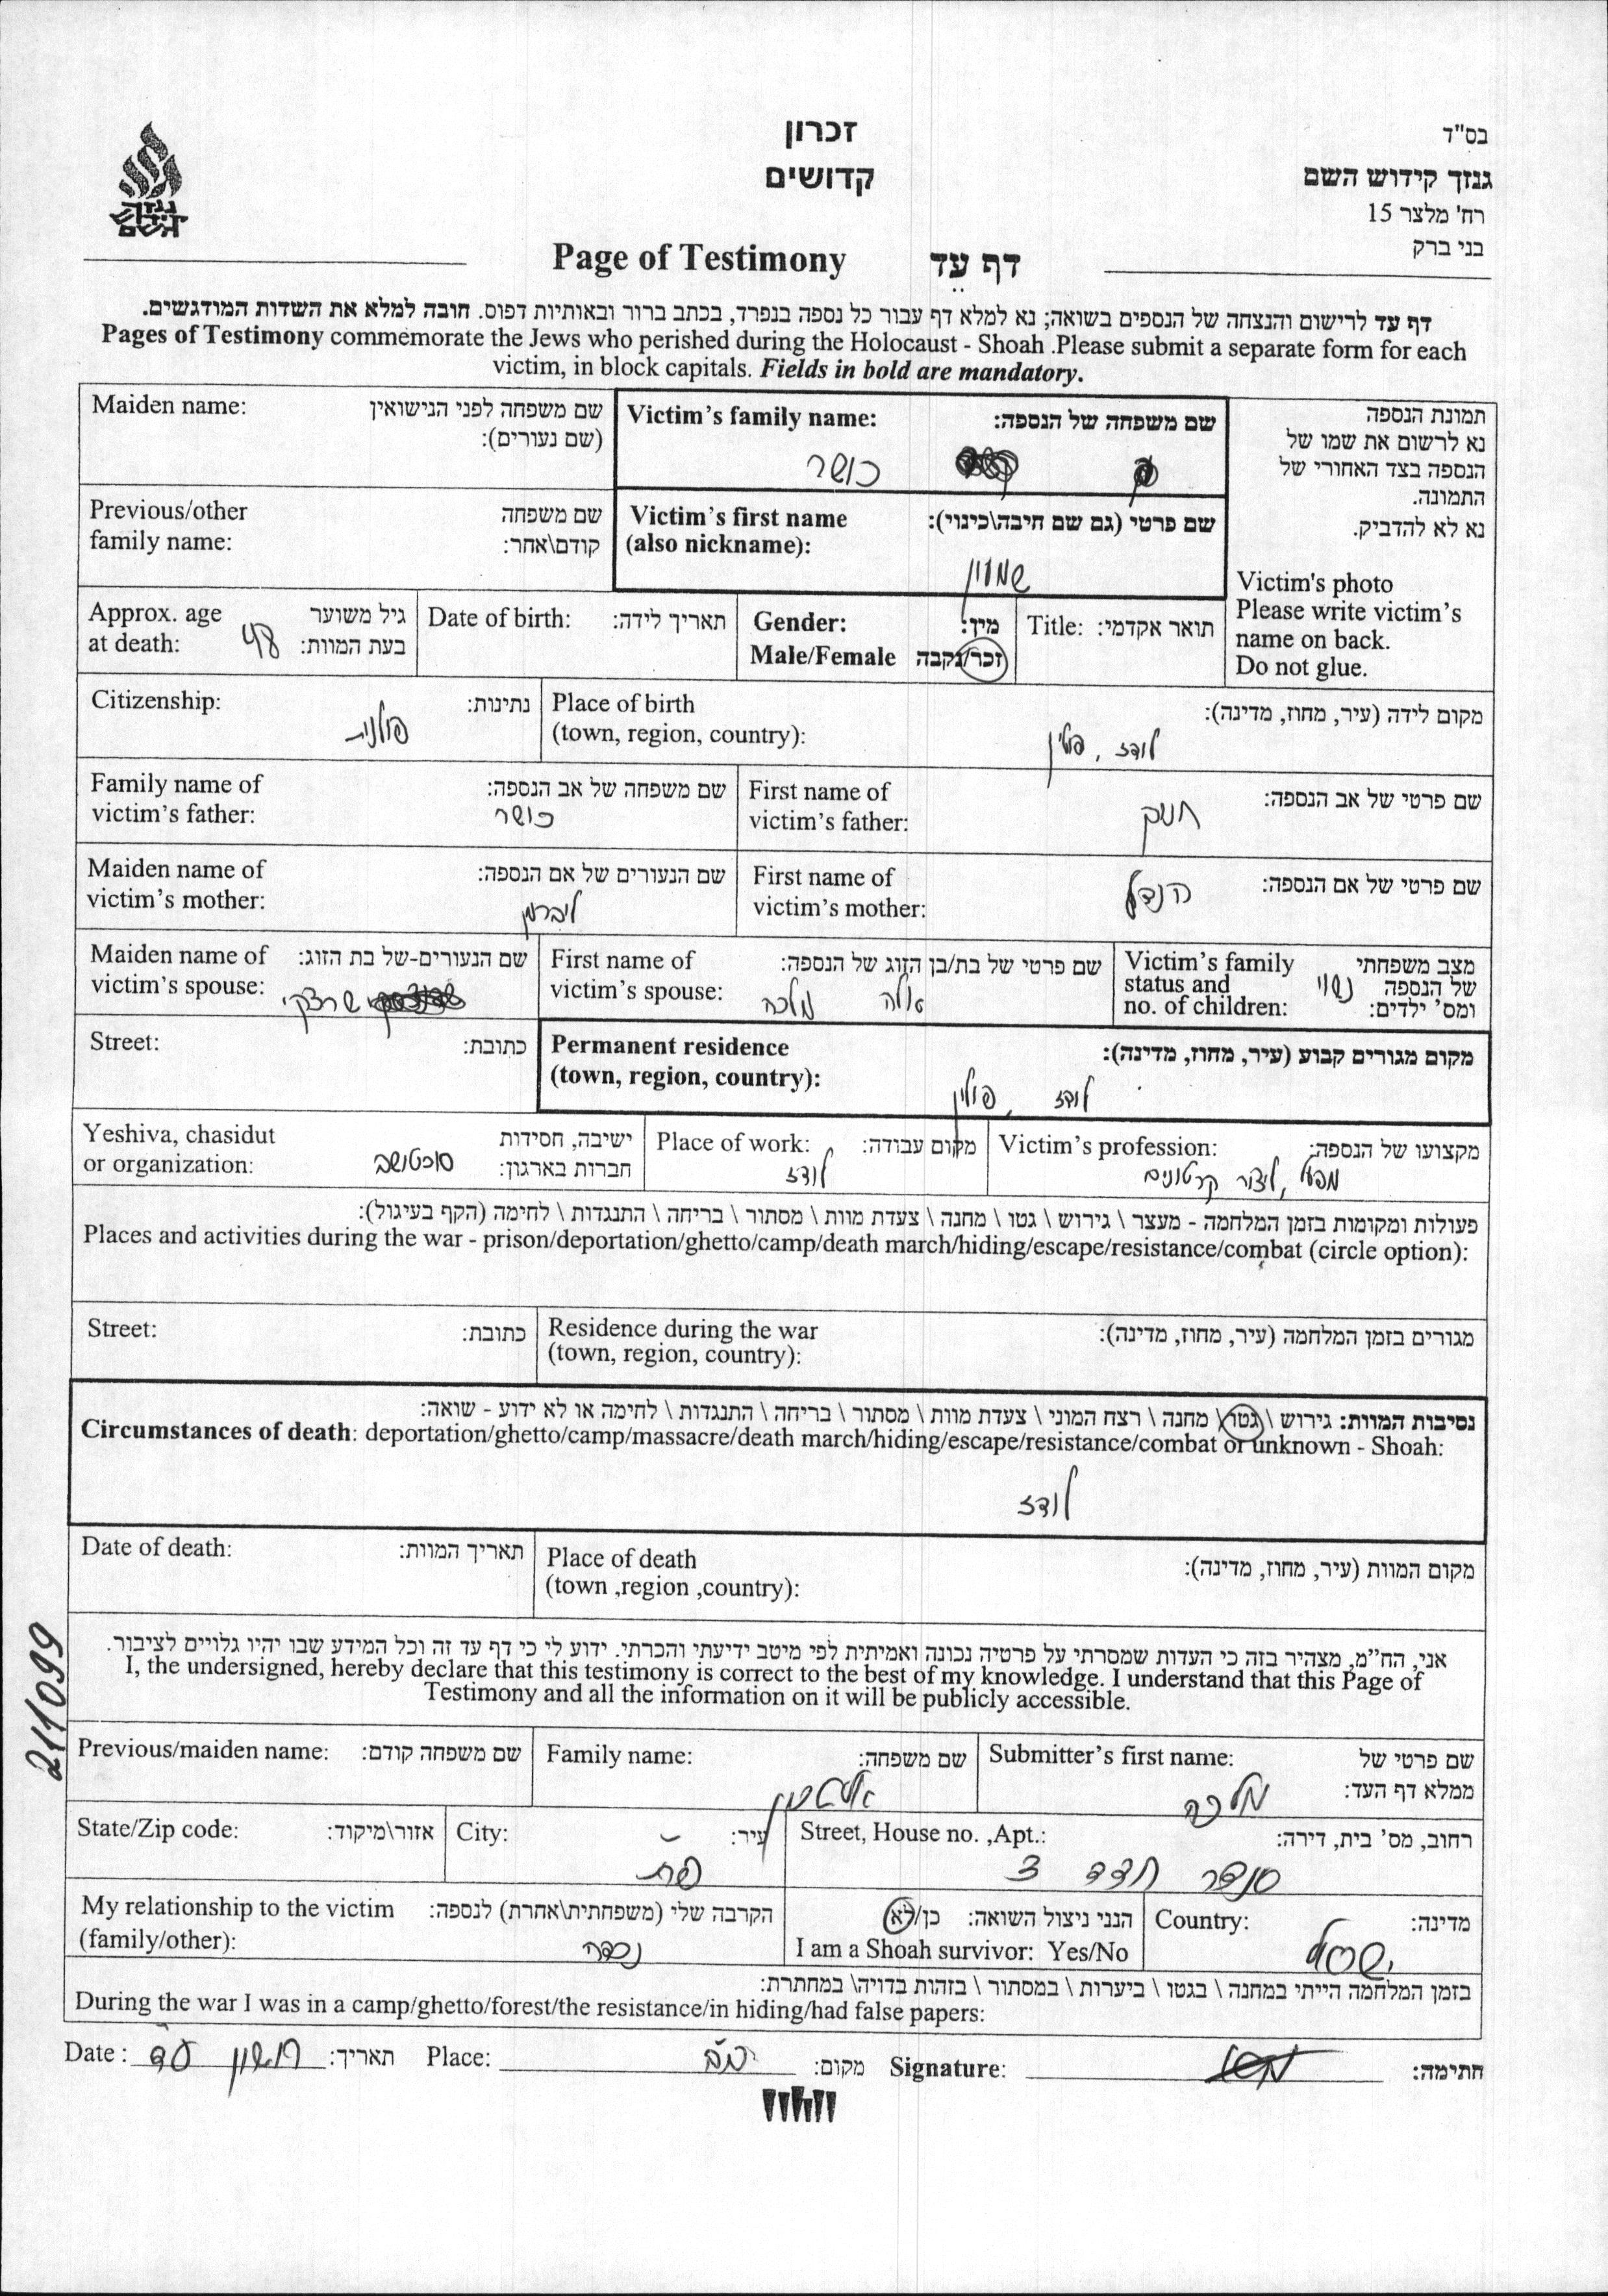 בס"ד
גנזך קידוש השם
רח' מלצר 15
בני ברק
זכרון
קדושים
גנזך
קידוש
השם
Page of Testimony דף עֵד
דף עד לרישום והנצחה של הנספים בשואה; נא למלא דף עבור כל נספה בנפרד, בכתב ברור ובאותיות דפוס. חובה למלא את השדות המודגשים.
Pages of Testimony commemorate the Jews who perished during the Holocaust - Shoah .Please submit a separate form for each
victim, in block capitals. Fields in bold are mandatory.
תמונת הנספה
נא לרשום את שמו של
הנספה בצד האחורי של
התמונה.
נא לא להדביק.
Victim's photo
Please write victim's
name on back.
Do not glue.
Victim's family name: שם משפחה של הנספה:
כושר
Maiden name: שם משפחה לפני הנישואין
(שם נעורים):
Victim's first name שם פרטי (גם שם חיבה\כינוי):
(also nickname):
שמעון
Previous/other שם משפחה
family name: קודם\אחר:
Title: תואר אקדמי:
Gender: מין:
Male/Female זכר/נקבה
Date of birth: תאריך לידה:
Approx. age גיל משוער
at death: בעת המוות: 48
Place of birth מקום לידה (עיר, מחוז, מדינה):
(town, region, country): לודז, פולין
Citizenship: נתינות:
פולנית
First name of שם פרטי של אב הנספה:
victim's father: חנוך
Family name of שם משפחה של אב הנספה:
victim's father: כושר
First name of שם פרטי של אם הנספה:
victim's mother: הנדל
Maiden name of שם הנעורים של אם הנספה:
victim's mother: ליברמן
Victim's family מצב משפחתי
status and של הנספה נשוי
no. of children: ומס' ילדים:
First name of שם פרטי של בת/בן הזוג של הנספה:
victim's spouse: אלה מלכה
Maiden name of שם הנעורים-של בת הזוג:
victim's spouse:
Permanent residence מקום מגורים קבוע (עיר, מחוז, מדינה):
(town, region, country): לודז, פולין
Street: כתובת:
Victim's profession: מקצועו של הנספה:
מפעל ליצור קרטונים
Place of work: מקום עבודה:
לודז
Yeshiva, chasidut ישיבה, חסידות
or organization: חברות בארגון: סוכטשוב
פעולות ומקומות בזמן המלחמה - מעצר \ גירוש \ גטו \ מחנה \ צעדת מוות \ מסתור \ בריחה \ התנגדות \ לחימה (הקף בעיגול):
Places and activities during the war - prison/deportation/ghetto/camp/death march/hiding/escape/resistance/combat (circle option):
Residence during the war מגורים בזמן המלחמה (עיר, מחוז, מדינה):
(town, region, country):
Street: כתובת:
נסיבות המוות: גירוש \ גטו \ מחנה \ רצח המוני \ צעדת מוות \ מסתור \ בריחה \ התנגדות \ לחימה או לא ידוע - שואה:
Circumstances of death: deportation/ghetto/camp/massacre/death march/hiding/escape/resistance/combat or unknown - Shoah:
לודז
Place of death מקום המוות (עיר, מחוז, מדינה):
(town ,region ,country):
Date of death: תאריך המוות:
אני, הח"מ, מצהיר בזה כי העדות שמסרתי על פרטיה נכונה ואמיתית לפי מיטב ידיעתי והכרתי. ידוע לי כי דף עד זה וכל המידע שבו יהיו גלויים לציבור.
I, the undersigned, hereby declare that this testimony is correct to the best of my knowledge. I understand that this Page of
Testimony and all the information on it will be publicly accessible.
211099
Submitter's first name: שם פרטי של
ממלא דף העד:
מלכה
Family name: שם משפחה:
Previous/maiden name: שם משפחה קודם:
Street, House no. ,Apt.: רחוב, מס' בית, דירה:
3
City: עיר:
State/Zip code: אזור\מיקוד:
Country: מדינה:
ישראל
הנני ניצול השואה: כן/לא
I am a Shoah survivor: Yes/No
My relationship to the victim הקרבה שלי (משפחתית\אחרת) לנספה:
(family/other): נכדה
בזמן המלחמה הייתי במחנה \ בגטו \ ביערות \ במסתור \ בזהות בדויה\ במחתרת:
During the war I was in a camp/ghetto/forest/the resistance/in hiding/had false papers:
Date : תאריך: חשוון עד Place: מקום: Signature: חתימה: